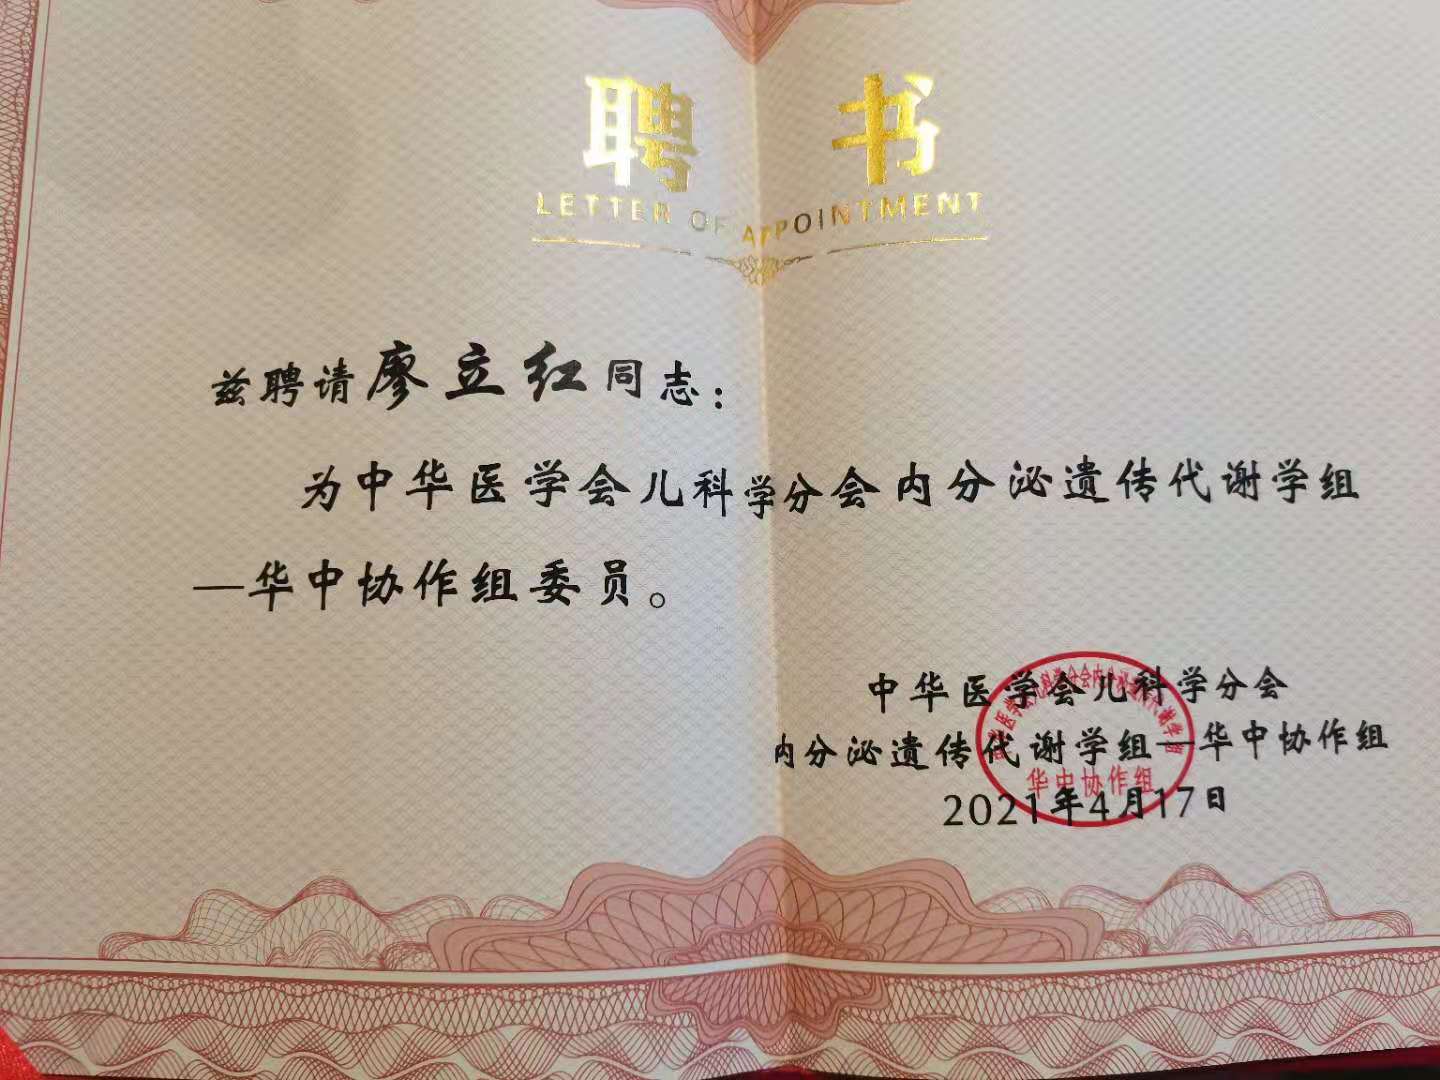 聘书
LETTER OF APPOINTMENT
兹聘请廖立红同志：
为中华医学会儿科学分会内分泌遗传代谢学组
—华中协作组委员。
中华医学会儿科学分会
内分泌遗传代谢学组—华中协作组
2021年4月17日
中华医学会儿科学分会内分泌遗传代谢学组
华中协作组